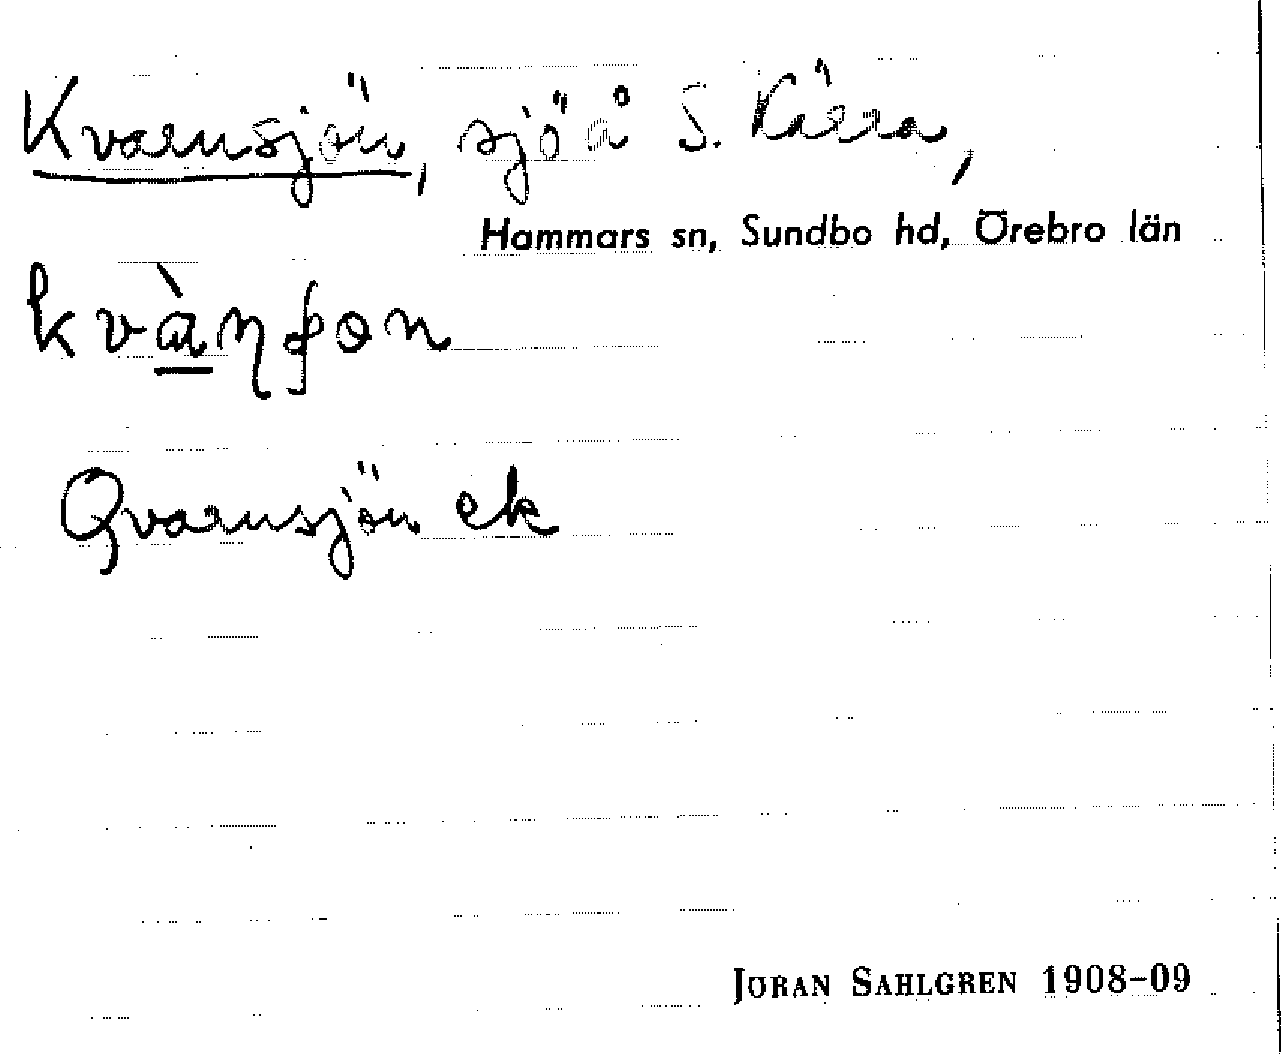 Kvarnsjön, sjö å S. Kärra,
Hammars sn, Sundbo hd, Örebro län
Qvarnsjön ek
JÖRAN SAHLGREN 1908-09